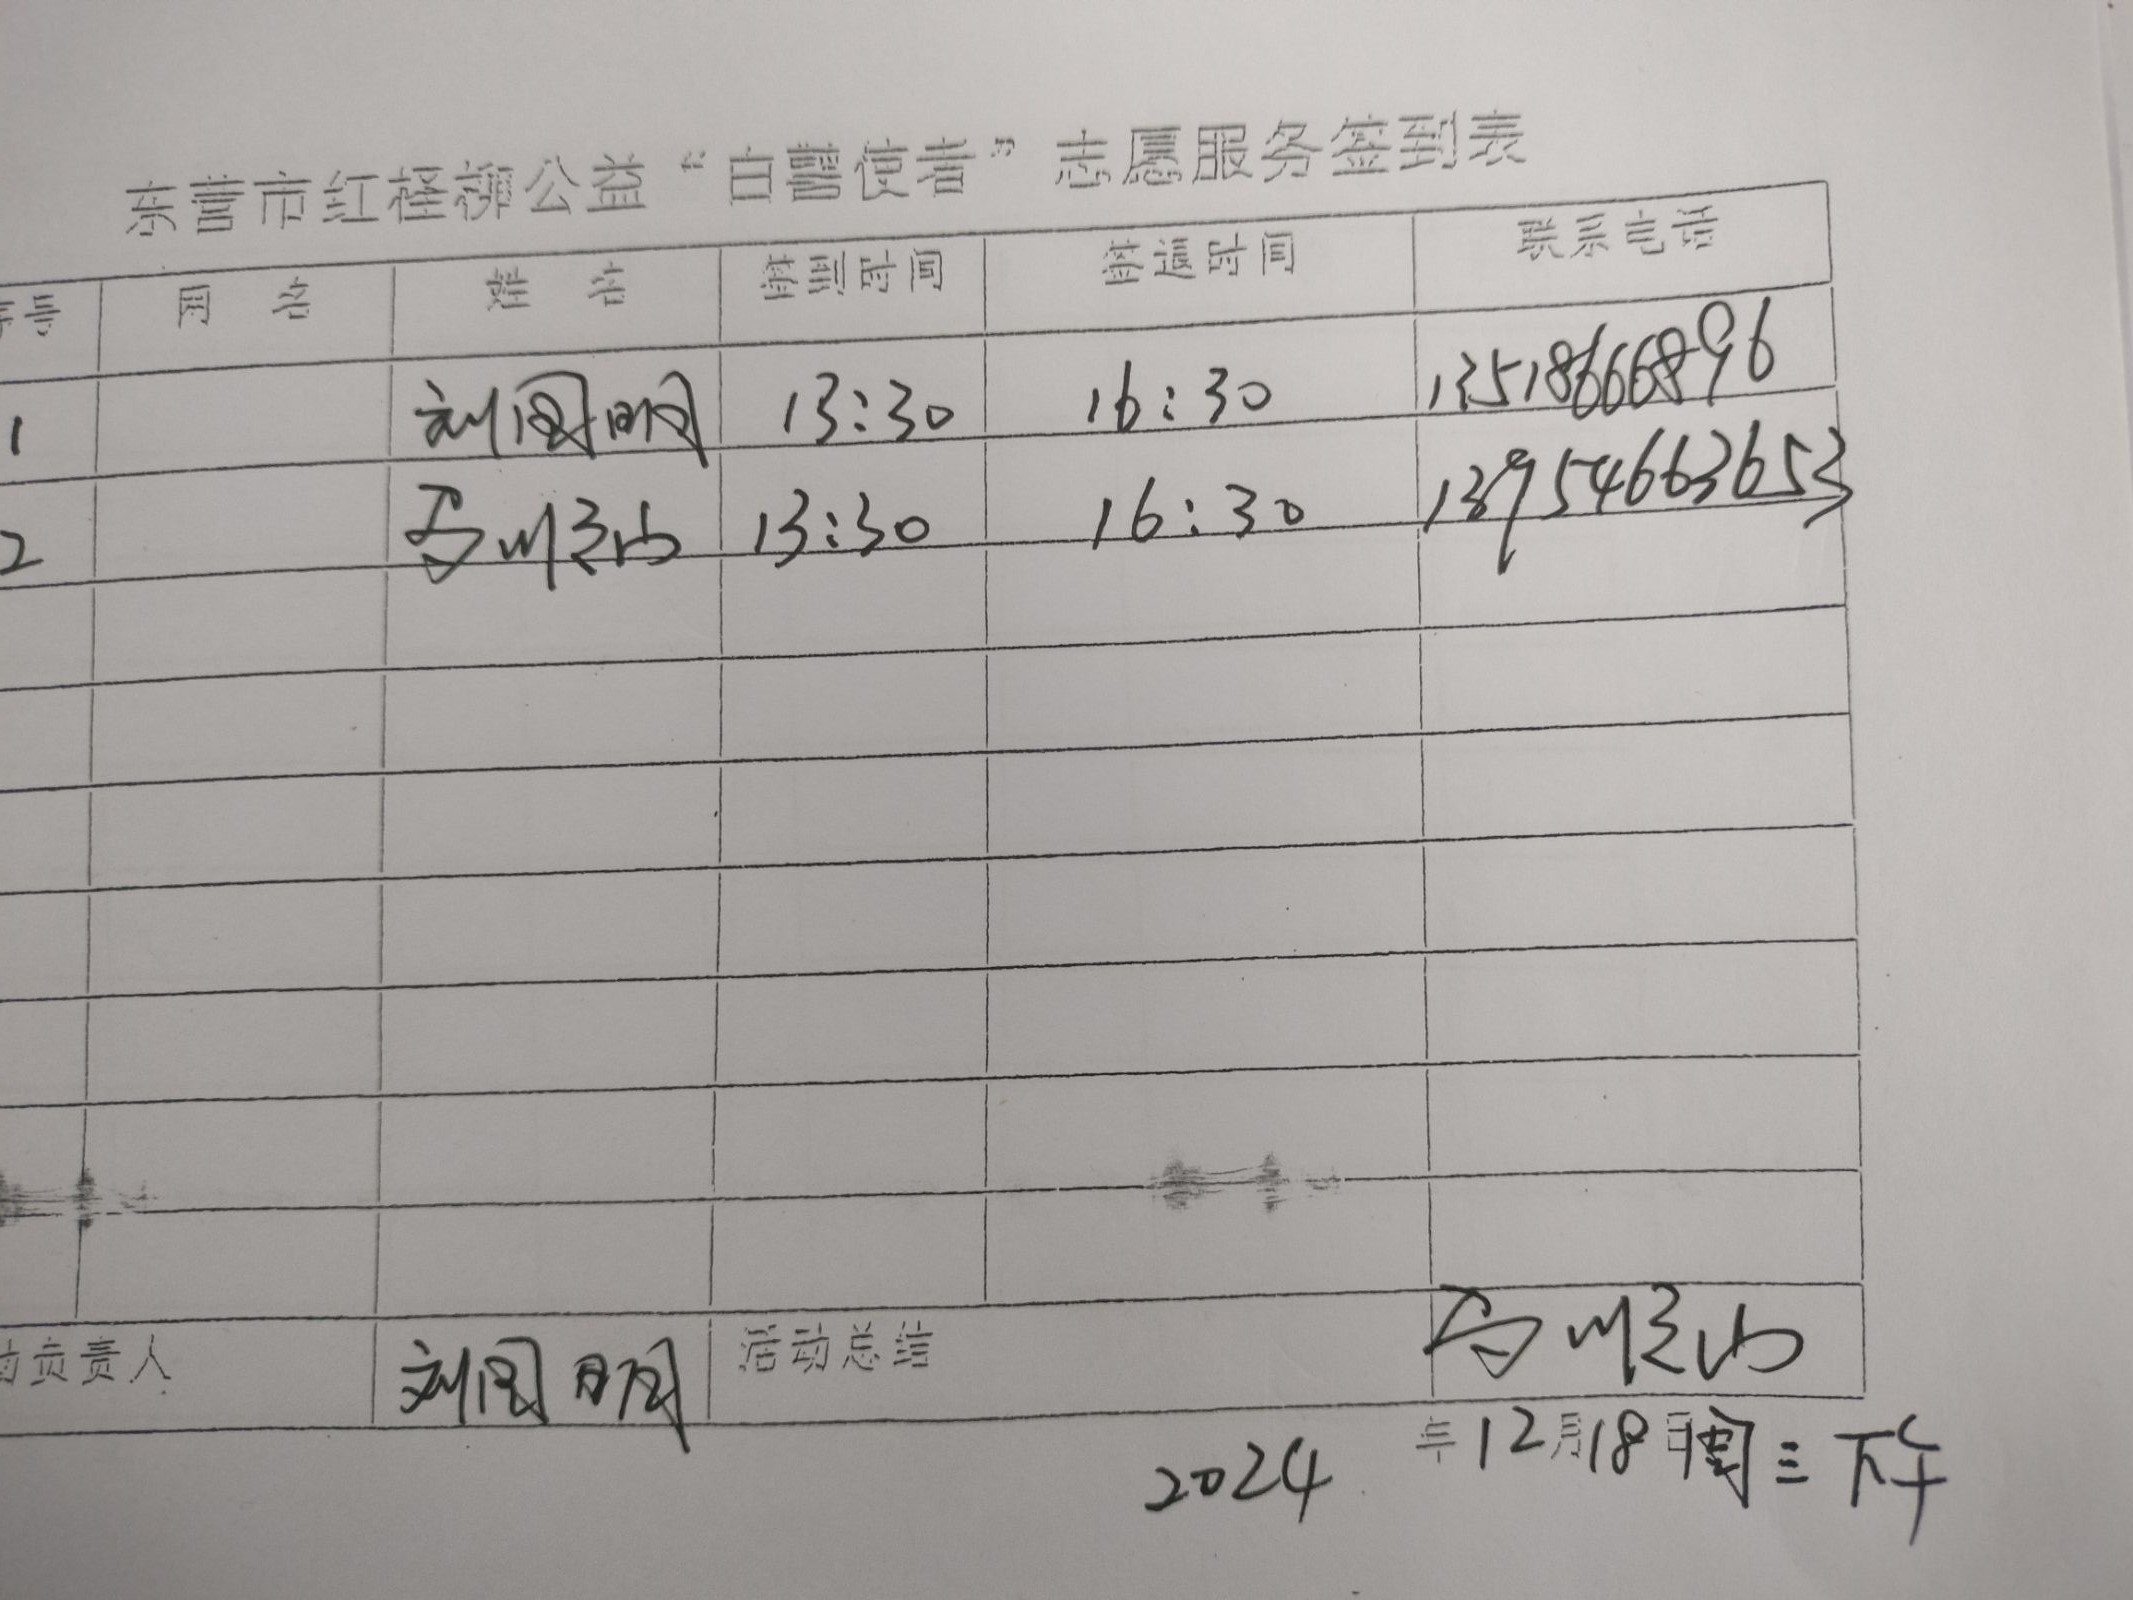 东营市红柽柳公益“白鹭使者”志愿服务签到表
序号 网名 姓名 签到时间 签退时间 联系电话
1 刘国明 13:30 16:30 13518666896
2 13:30 16:30 13954663653
动负责人 刘国明 活动总结
2024年12月18日周三下午